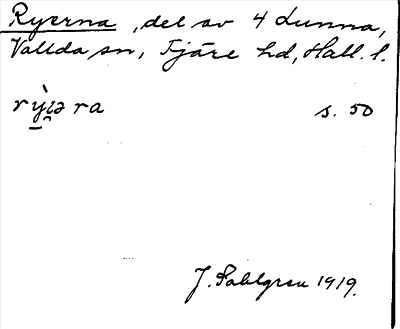 Ryerna, del av 4 Lunna,
Vallda sn, Fjäre hd, Hall. l.
rỳi̯əra s. 50
J. Sahlgren 1919.